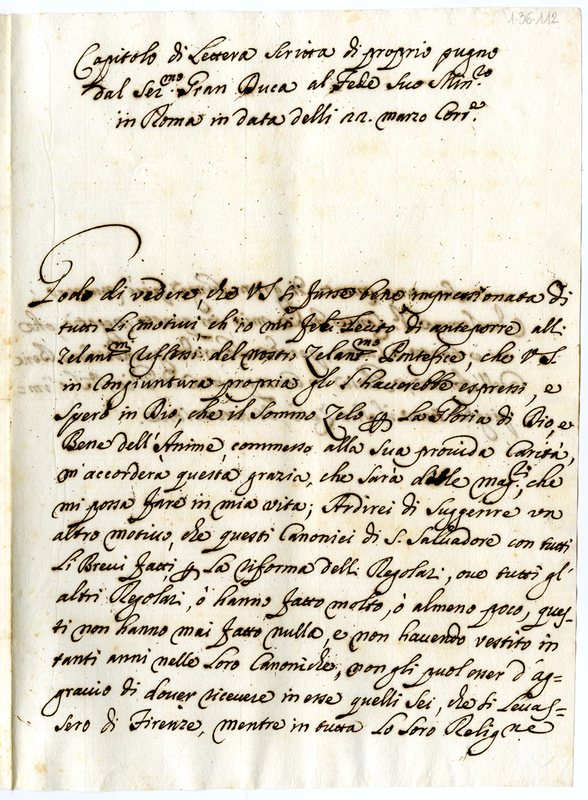 1-36-112
Capitolo di Lettera scritta di proprio pugno
dal Ser.mo Gran Duca al Fede Suo Min.ro
in Roma in data delli 22. marzo Corr.e
Godo di vedere che VS si fusse bene impressionata di
tutti li motivi, ch'io mi feci lecito di anteporre all:
Zelant.me riflessi. del nostro Zelant.mo Pontefice, che VS.
in congiuntura propria gle l'haverebbe espressi, e
spero in Dio, che il sommo Zelo p la Gloria di Dio, e
Bene dell'Anime, commesso alla sua provida Carità,
m'accorderà questa grazia, che sarà delle mag.ri, che
mi possa fare in mia vita; Ardirei di suggerire un
altro motivo, che questi Canonici di S. Salvadore con tutti
li Brevi fatti, p la riforma delli Regolari, ove tutti gl'
altri Regolari, ò hanno fatto molto, ò almeno poco, ques-
ti non hanno mai fatto nulla, e non havendo vestito in
tanti anni nelle loro Canoniche, non gli puol esser d'ag=
gravio di dover ricevere in esse quelli sei, che si levas=
sero di Firenze, mentre in tutta la loro Relig.ne